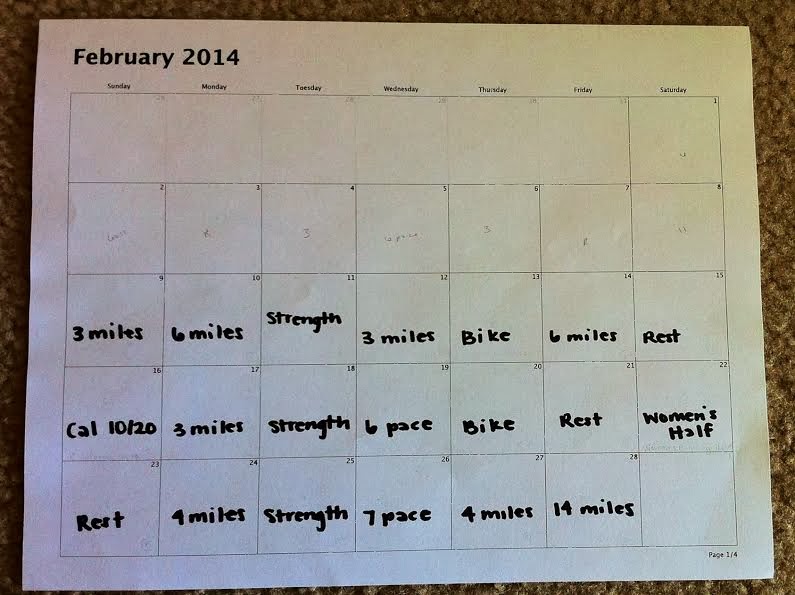 February 2014
Sunday Monday Tuesday Wednesday Thursday Friday Saturday
26 27 28 29 30 31 1
2 3 4 5 6 7 8
R 3 6 pace 3 R 11
9 10 11 12 13 14 15
3 miles 6 miles Strength 3 miles Bike 6 miles Rest
16 17 18 19 20 21 22
Cal 10/20 3 miles Strength 6 pace Bike Rest Women's
Half
23 24 25 26 27 28
Rest 4 miles Strength 7 pace 4 miles 14 miles
Page 1/4